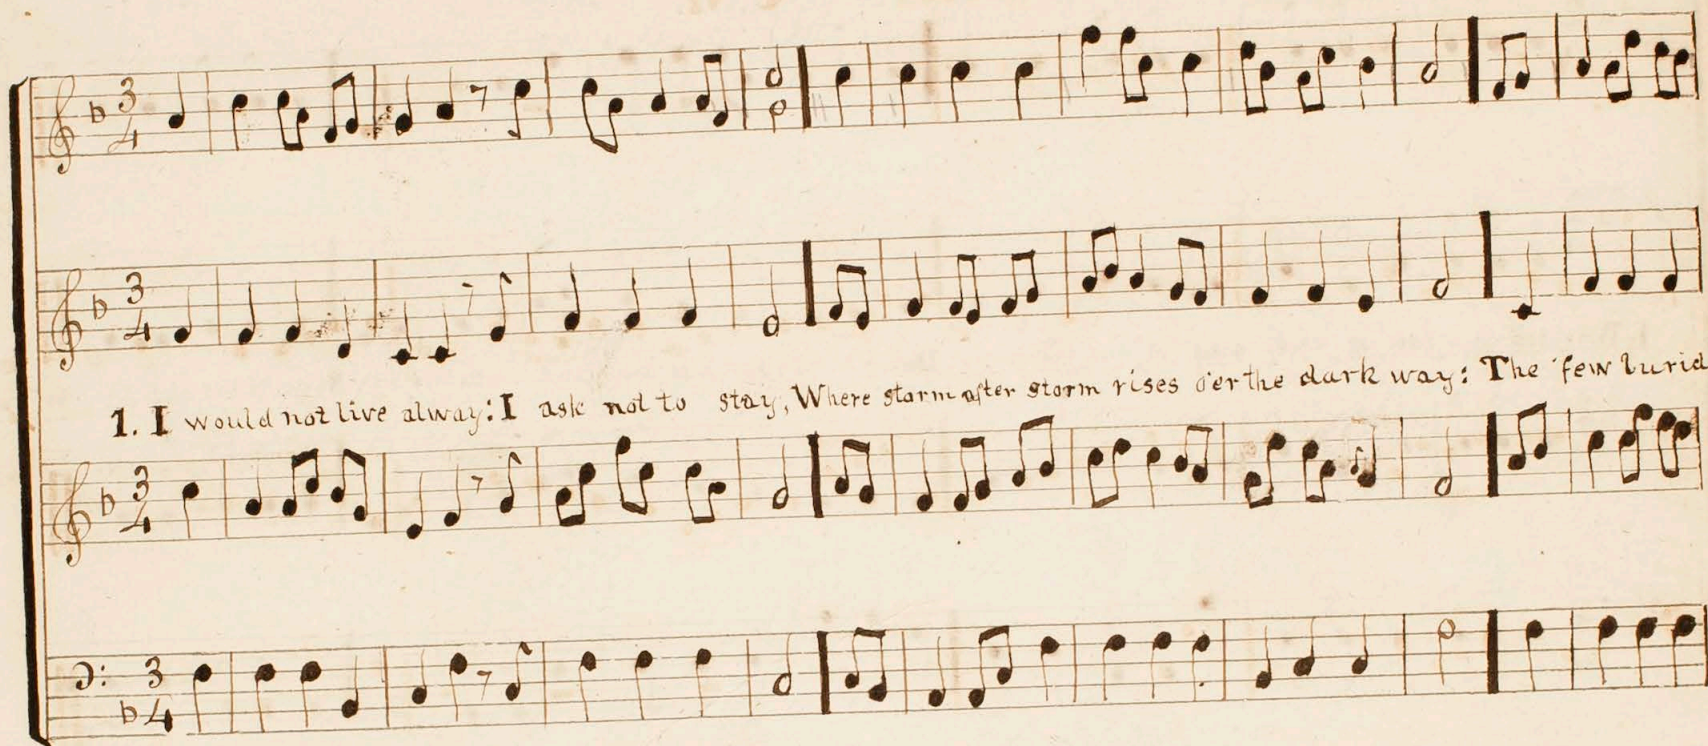 3
4
3
4
1. I would not live alway: I ask not to stay, Where storm after storm rises o'er the dark way: The few lurid
3
4
3
4